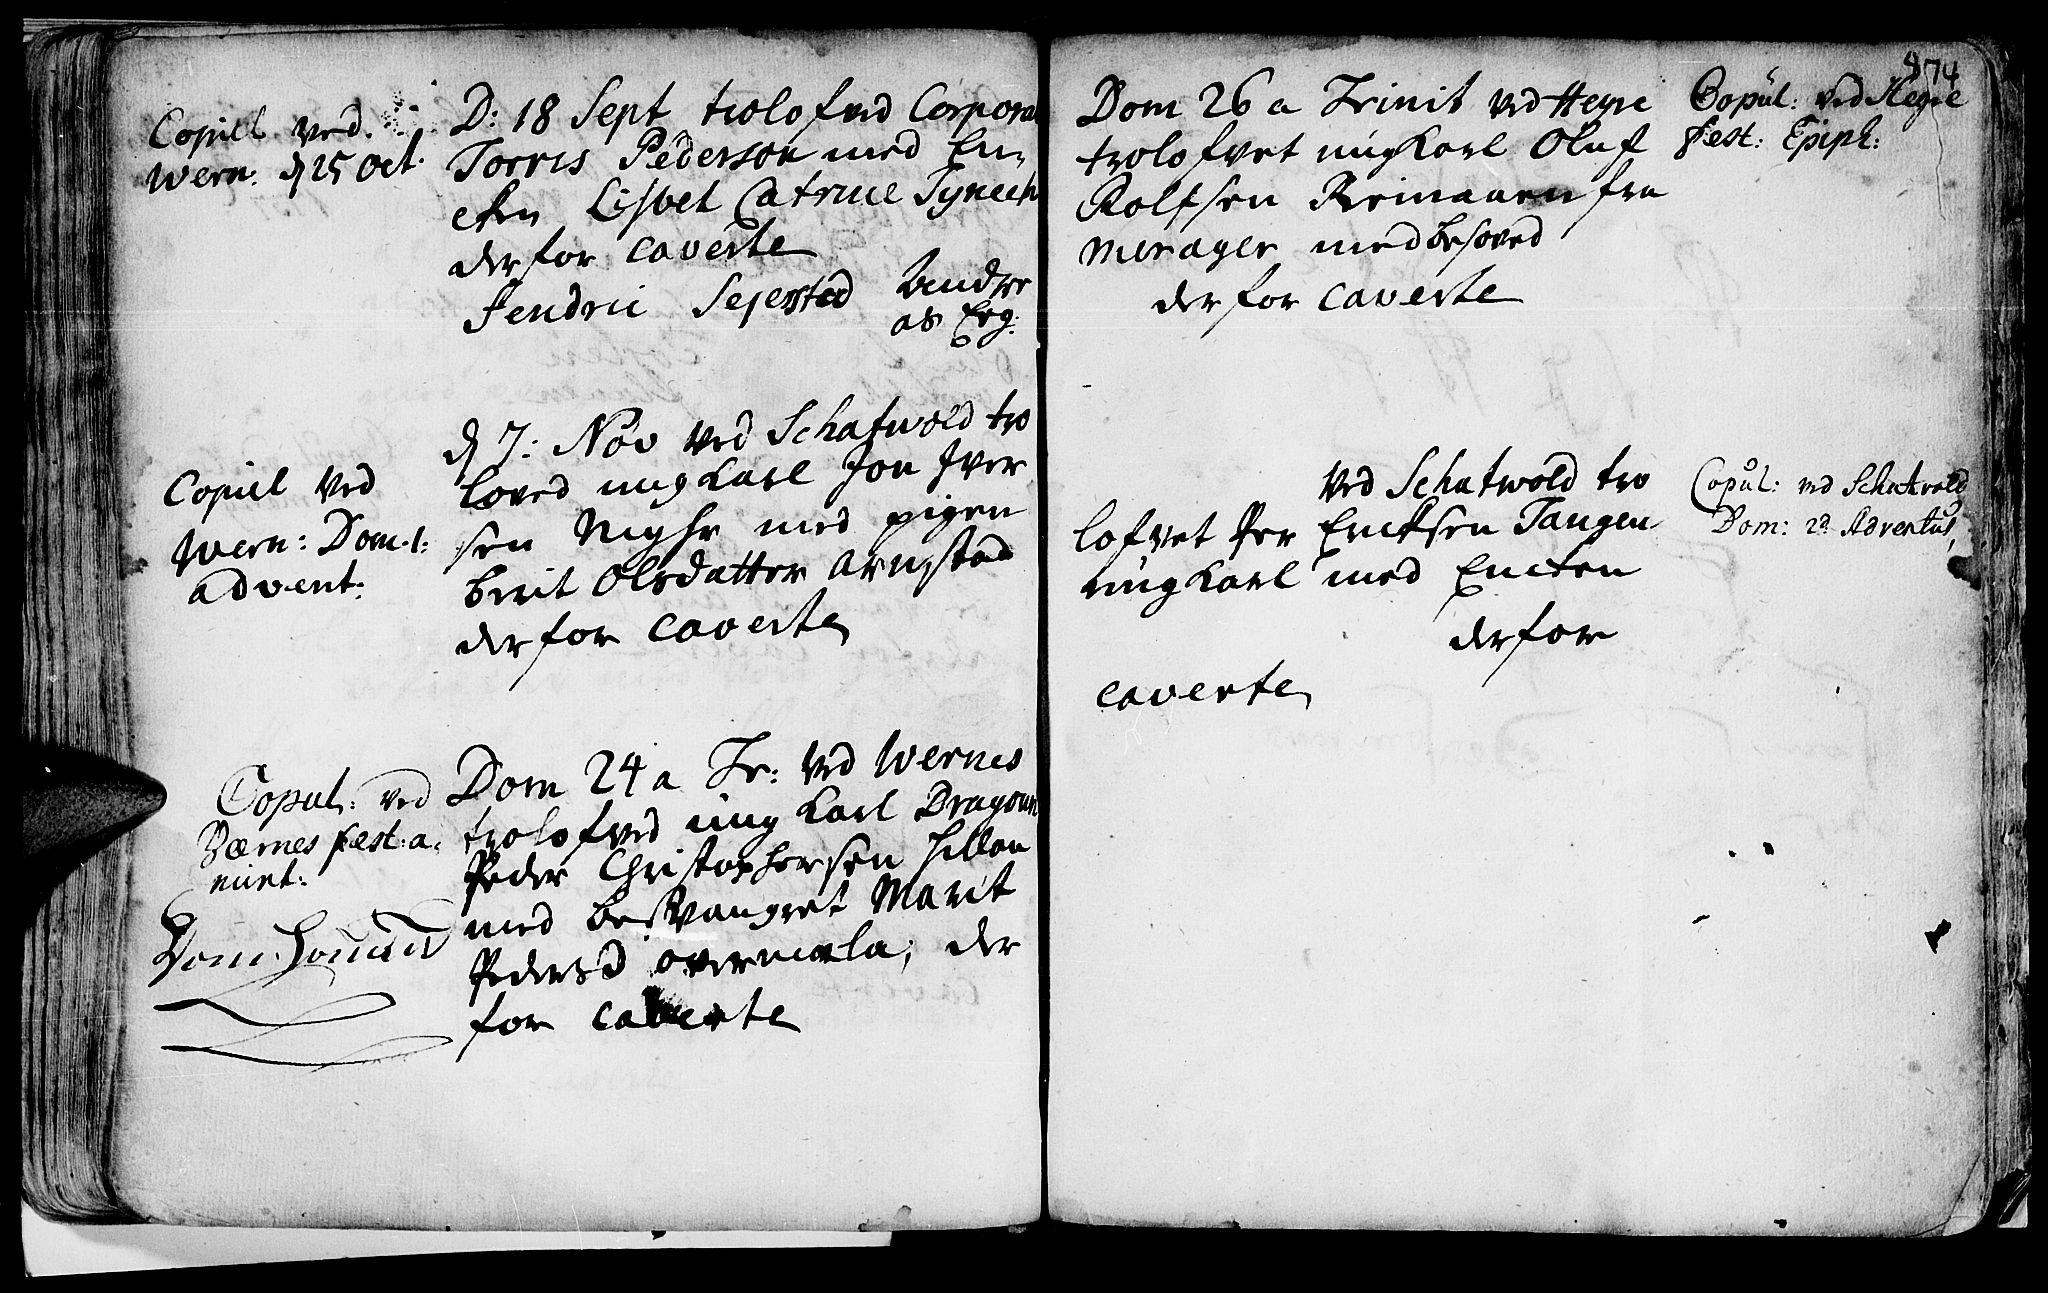 Copul ved
Wern: d 25 Oct.
D: 18 Sept trolofved Corporal
Torris Pederson med En-
cken Lisbet Catrine Tynech
derfor caverte
Hendric Sejersted Andre
as Erg:
Copul ved
Wern: Dom. 1:
advent:
d 7: Nov ved Schatwold tro
loved ungkarl Jon Iver
sen Myhr med pigen
berit Olsdatter Arnstad
derfor caverte
Copul: ved
Værnes fest: a,
nunt:
Dom 24 a Tr: ved Wernes
trolofved ung karl Dragoun
Peder Christophersen Hillan
med besvangret Marit
Pedersd overmela, der
for caverte
874
Dom 26 a Trinit ved Hegre
trolofvet ungkarl Oluf
Rolfsen Remaaen fra
Merager med besoved
derfor caverte
Copul: ved Hegre
Fest: Epiph:
ved Schatwold tro
lofvet Per Ericksen Tangen
ungkarl med Encken
derfor
caverte
Copul: ved Schatvold
Dom: 2d Adventus,